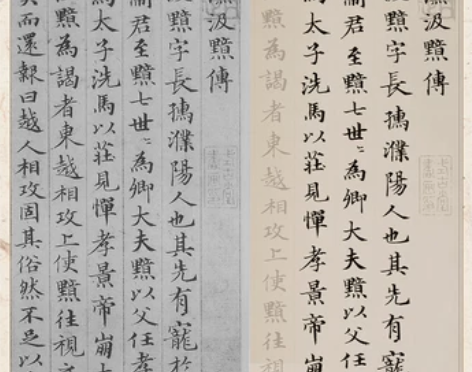 汲黯傳
黯字長孺濮陽人也其先有寵
君至黯七世〻為卿大夫黯以父任
太子洗馬以莊見憚孝景帝崩
黯為謁者東越相攻上使黯往視
汲黯傳
黯字長孺濮陽人也其先有寵於
君至黯七世〻為卿大夫黯以父任孝
太子洗馬以莊見憚孝景帝崩
黯為謁者東越相攻上使黯往視
而還報曰越人相攻固其俗然不足以